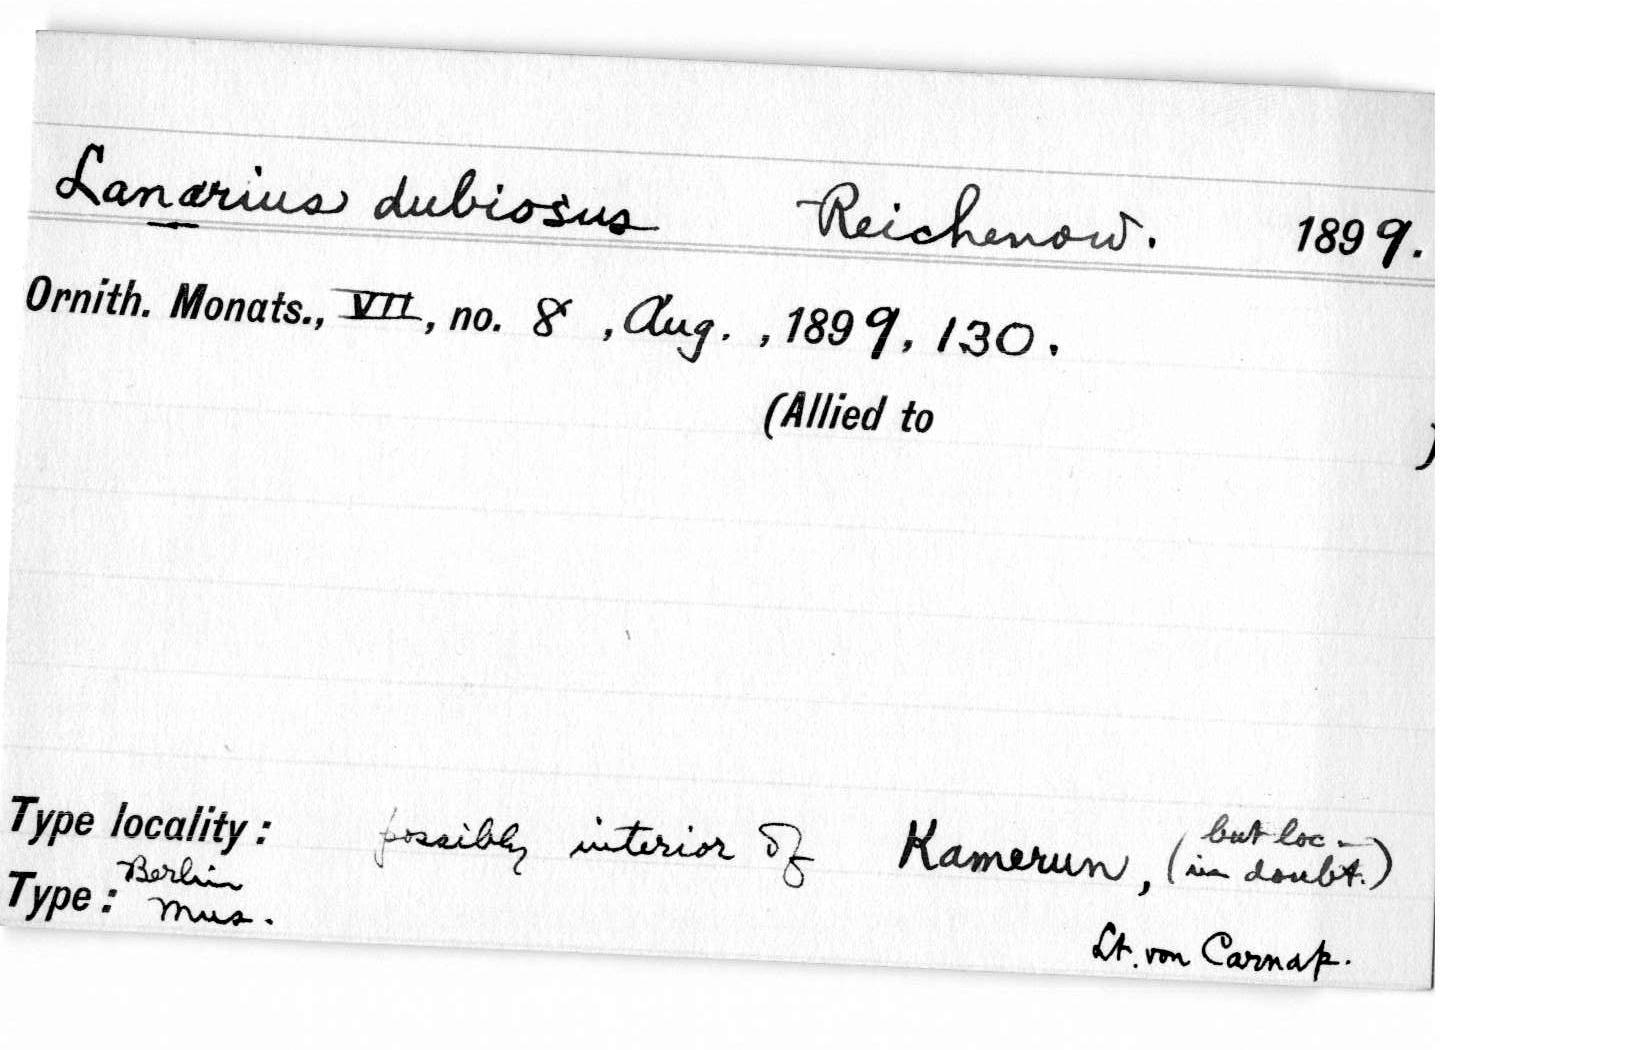 Lanarius dubiosus Reichenow. 1899.
Ornith. Monats., VII, no. 8, Aug., 1899, 130.
(Allied to )
Type locality: possibly interior of Kamerun, (but loc. in doubt.)
Type: Berlin Mus.
Lt. von Carnap.